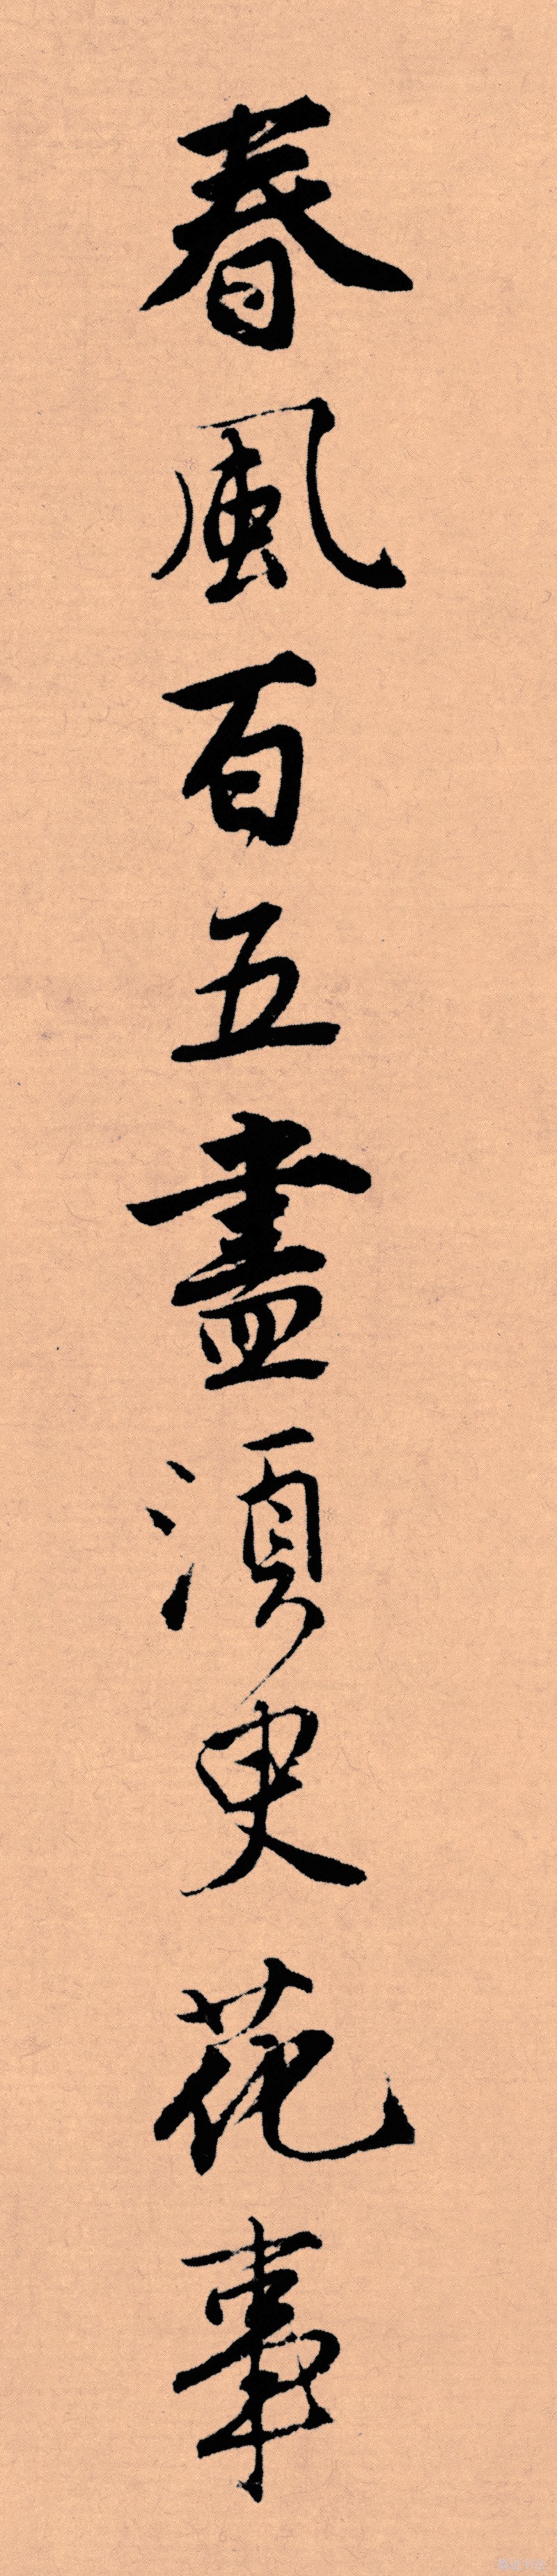 春風百五盡須臾花事